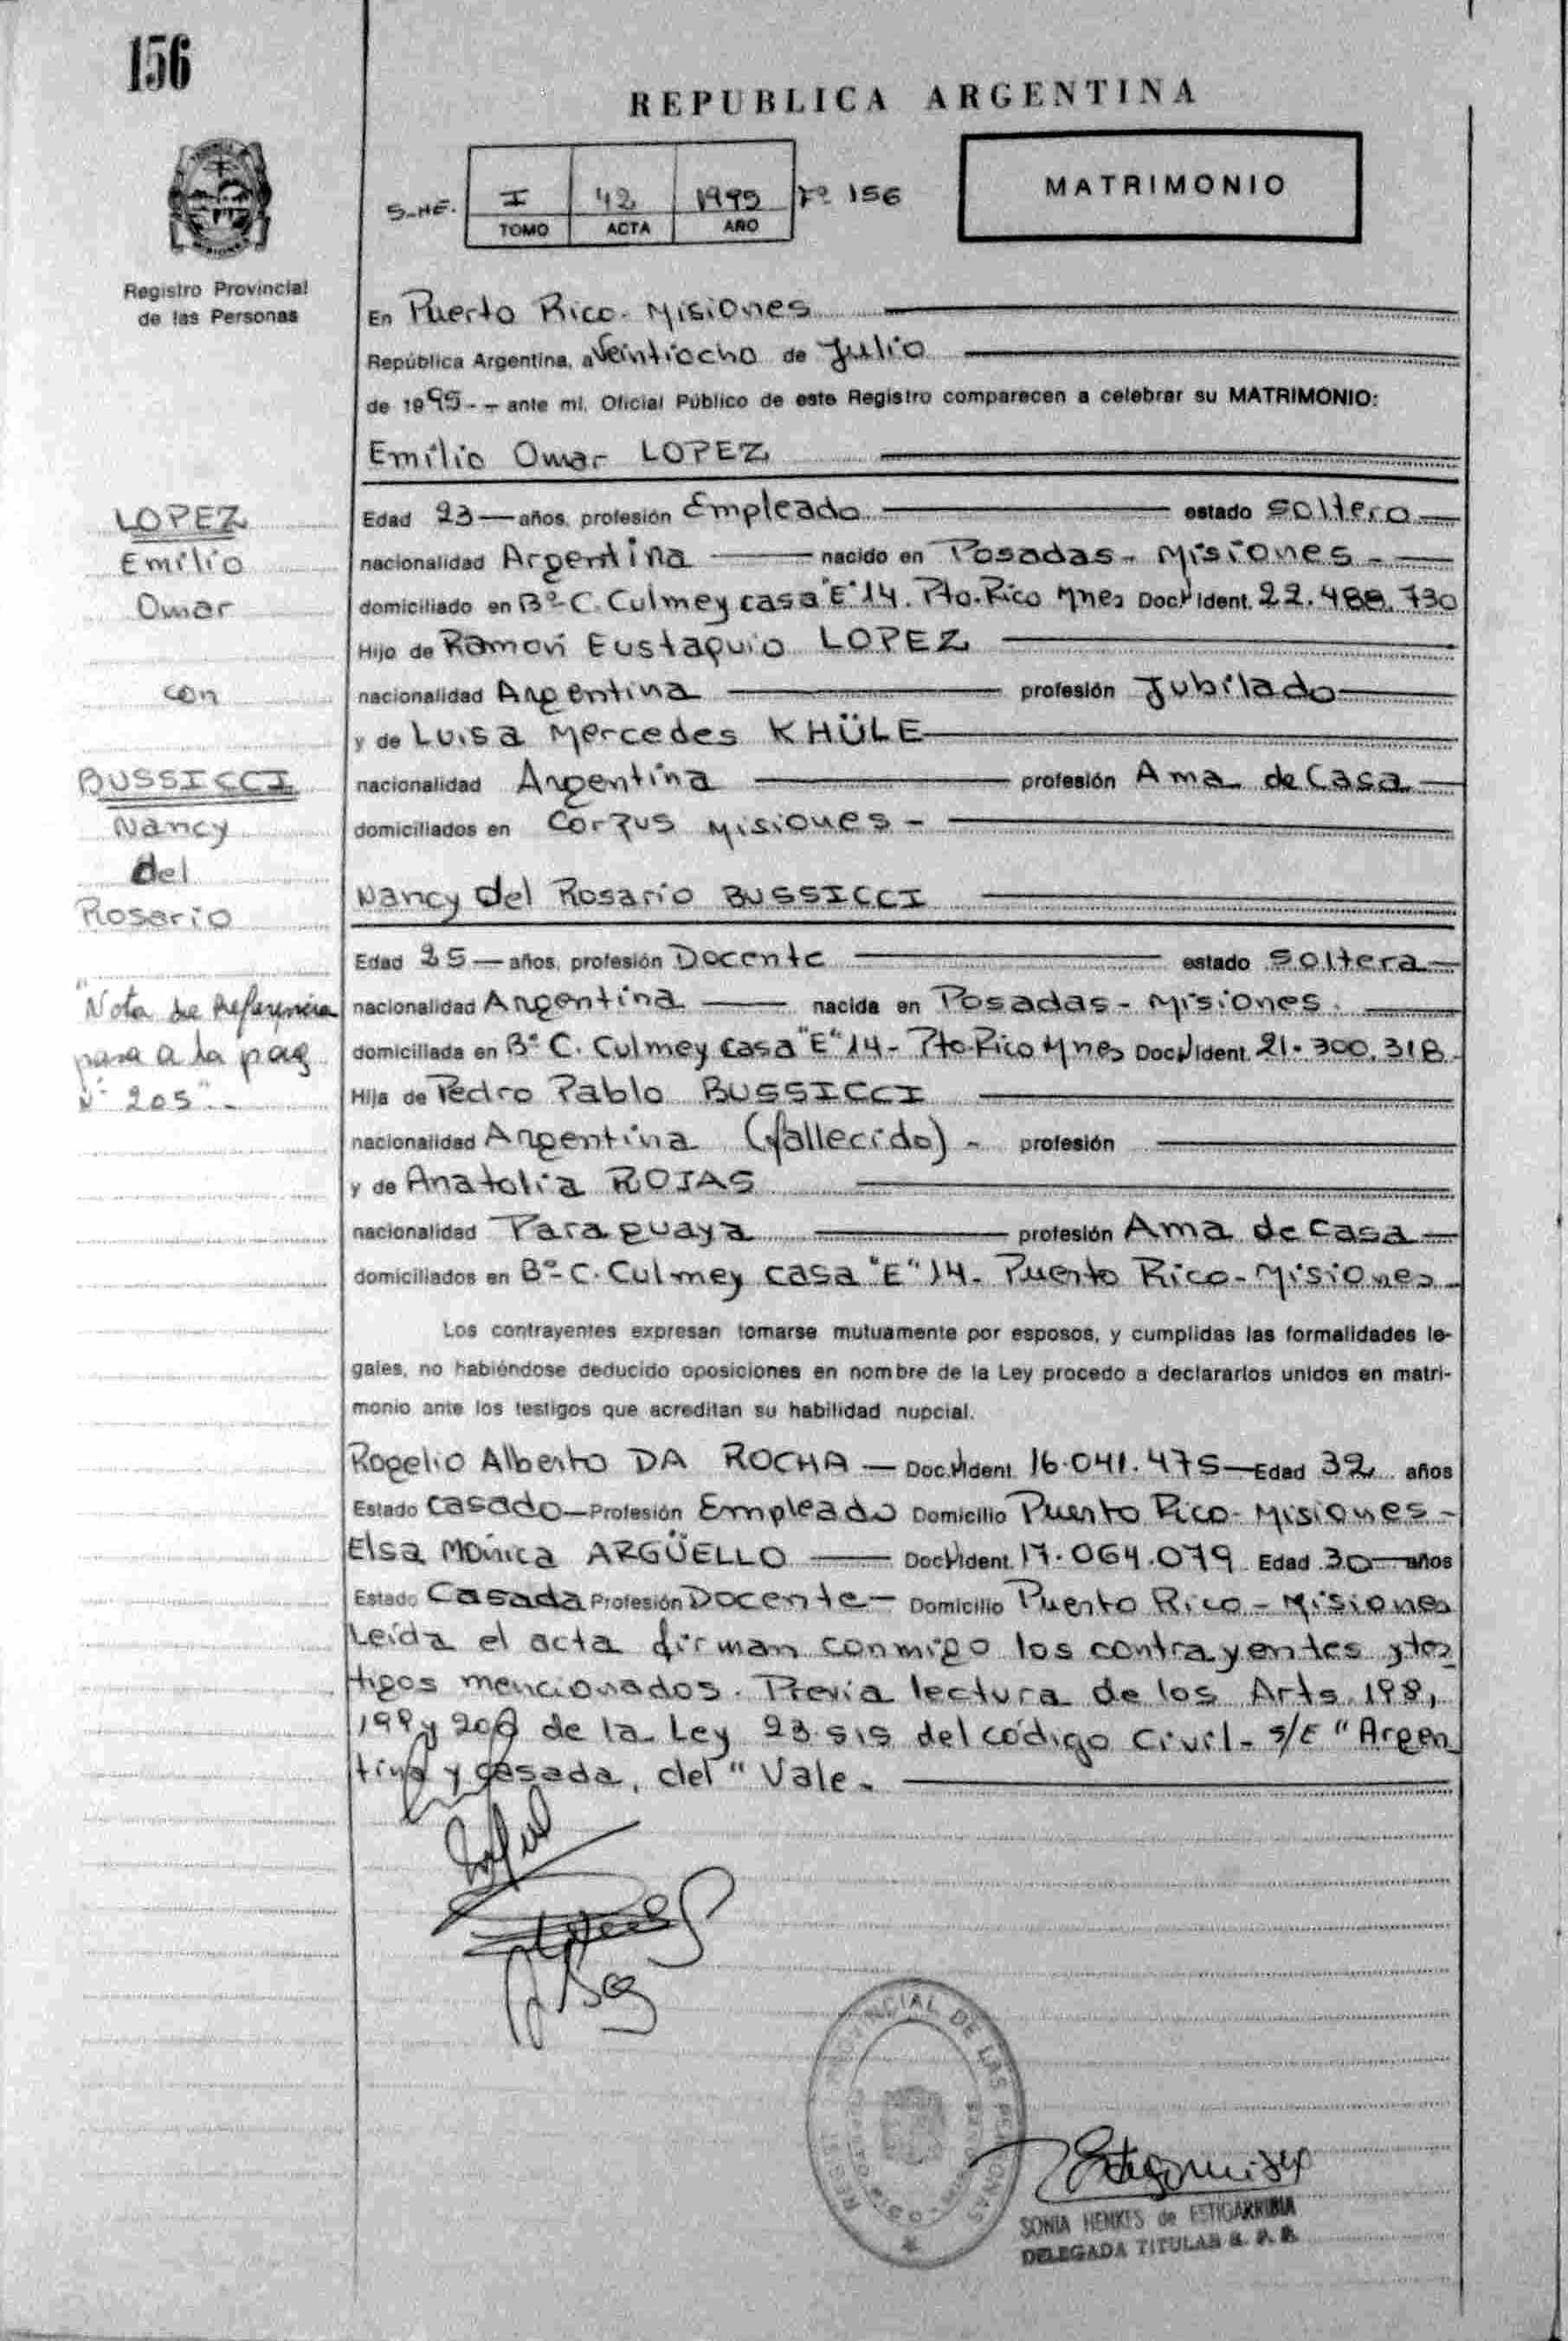 156
REPUBLICA ARGENTINA
S-HE.
I
42
1995
Fº 156
TOMO
ACTA
AÑO
MATRIMONIO
Registro Provincial
de las Personas
En Puerto Rico - Misiones
República Argentina, a Veintiocho de Julio
de 1995 - - ante mí, Oficial Público de este Registro comparecen a celebrar su MATRIMONIO:
Emilio Omar LOPEZ
LOPEZ
Emilio
Omar
con
BUSSICCI
Nancy
del
Rosario
"Nota de Referencia
pasa a la pag
Nº 205".-
Edad 23 — años, profesión Empleado — estado Soltero —
nacionalidad Argentina — nacido en Posadas - Misiones -
domiciliado en Bº C. Culmey casa "E" 14. Pto. Rico Mnes Doc. Ident. 22.488.730
Hijo de Ramón Eustaquio LOPEZ
nacionalidad Argentina — profesión Jubilado —
y de Luisa Mercedes KHÜLE
nacionalidad Argentina — profesión Ama de Casa —
domiciliados en Corpus Misiones -
Nancy del Rosario BUSSICCI
Edad 25 — años, profesión Docente — estado Soltera —
nacionalidad Argentina — nacida en Posadas - Misiones.
domiciliada en Bº C. Culmey casa "E" 14 - Pto Rico Mnes Doc. Ident. 21.300.318
Hija de Pedro Pablo BUSSICCI
nacionalidad Argentina (fallecido) - profesión
y de Anatolia ROJAS
nacionalidad Paraguaya — profesión Ama de Casa —
domiciliados en Bº C. Culmey casa "E" 14 - Puerto Rico - Misiones
Los contrayentes expresan tomarse mutuamente por esposos, y cumplidas las formalidades le-
gales, no habiéndose deducido oposiciones en nombre de la Ley procedo a declararlos unidos en matri-
monio ante los testigos que acreditan su habilidad nupcial.
Rogelio Alberto DA ROCHA — Doc. Ident. 16.041.475 — Edad 32 años
Estado casado — Profesión Empleado Domicilio Puerto Rico - Misiones -
Elsa Mónica ARGÜELLO — Doc. Ident. 17.064.079 Edad 30 — años
Estado Casada Profesión Docente — Domicilio Puerto Rico - Misiones
Leída el acta firman conmigo los contrayentes y tes_
tigos mencionados. Previa lectura de los Arts. 198,
199 y 200 de la Ley 23.515 del código civil - s/E "Argen_
tina y casada, del" Vale.
REGISTRO PROVINCIAL DE LAS PERSONAS
SONIA HENKES de ESTIGARRIBIA
DELEGADA TITULAR R. P. P.